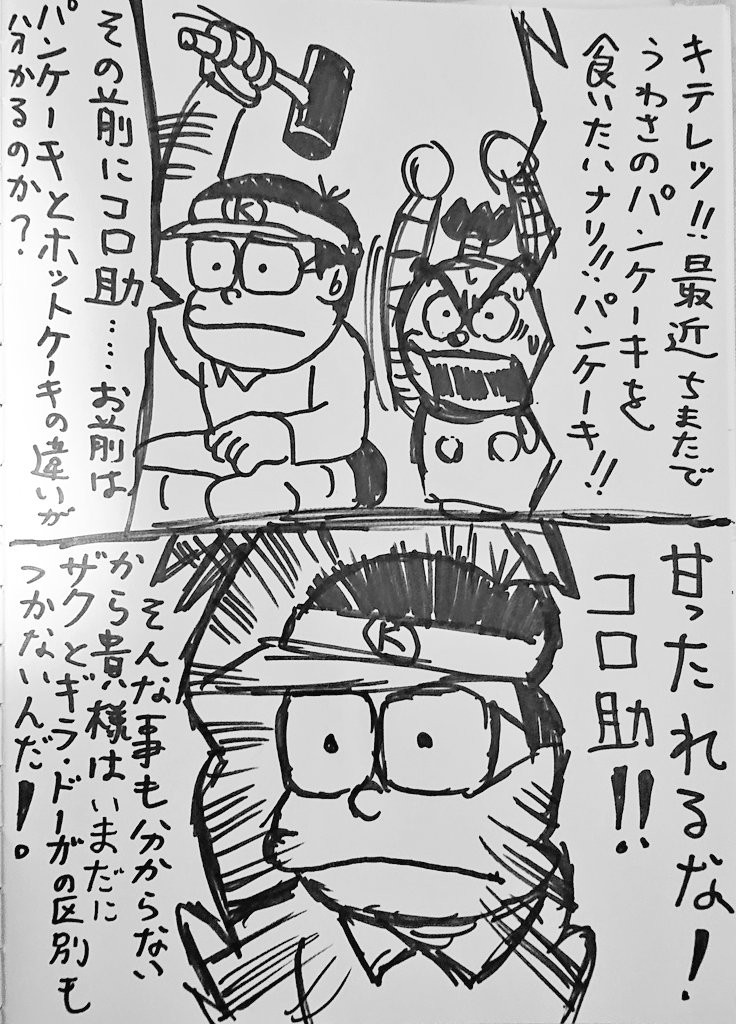 キテレツ!!最近ちまたで
うわさのパンケーキを
食いたいナリ!!パンケーキ!!
その前にコロ助……お前は
パンケーキとホットケーキの違いが
分かるのか?
K
甘ったれるな!
コロ助!!
K
そんな事も分からない
から貴様はいまだに
ザクとギラ・ドーガの区別も
つかないんだ!。